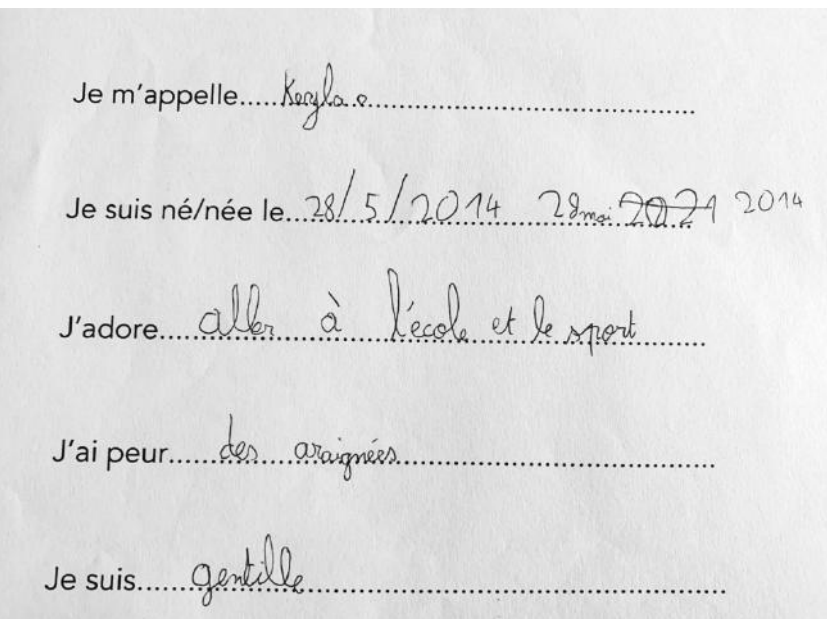 Je m'appelle.....Keyla.............................................
Je suis né/née le...28/5/2014 28 mai 2021 2014
J'adore.....aller à l'école et le sport........
J'ai peur......des araignées.............................................
Je suis......gentille.............................................